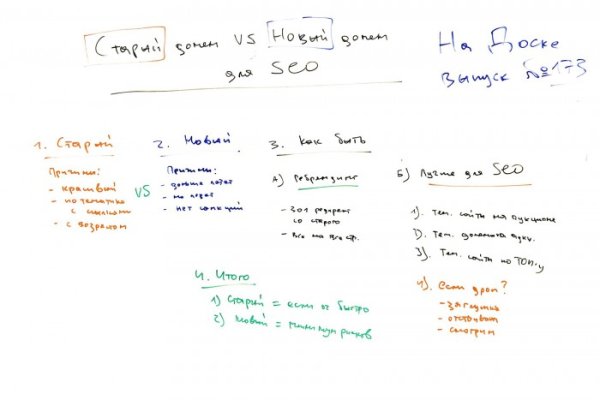 Старый домен VS Новый домен
для SEO
На Доске
выпуск №173
1. Старый
Причины:
- красивый
- по тематике
с ссылками
- с возрастом
VS
2. Новый
Причины:
- дольше
- нет санкций
3. Как быть
А) Ребрендинг
- 301 редирект
со старого
- все на все стр.
Б) Лучше для SEO
1). Тем. сайты на аукционе
2). Тем. домена аукц.
3). Тем. сайты по ТОП-у
4). Если дроп?
- заглушка
- отстаиваем
- смотрим
4. Итого
1) Старый = если ок быстро
2) Новый = минимум рисков